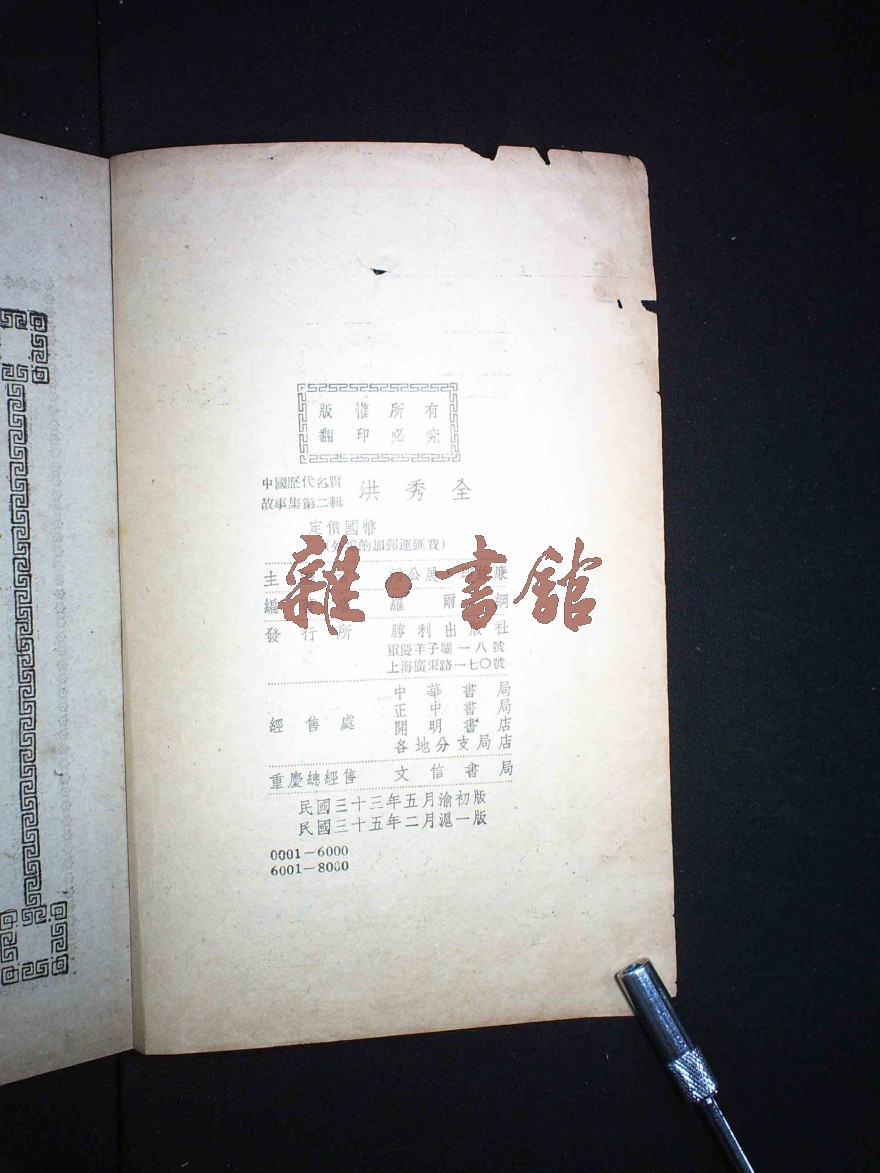 版權所有
翻印必究
中國歷代名賢
故事集第二輯
洪秀全
定價國幣
酌加郵運匯費)
主
公展
康
編
羅爾綱
發行所 勝利出版社
重慶羊子壩一八號
上海廣東路一七〇號
經售處
中華書局
正中書局
開明書店
各地分支局店
重慶總經售 文信書局
民國三十三年五月渝初版
民國三十五年二月滬一版
0001－6000
6001－8000
雜·書館